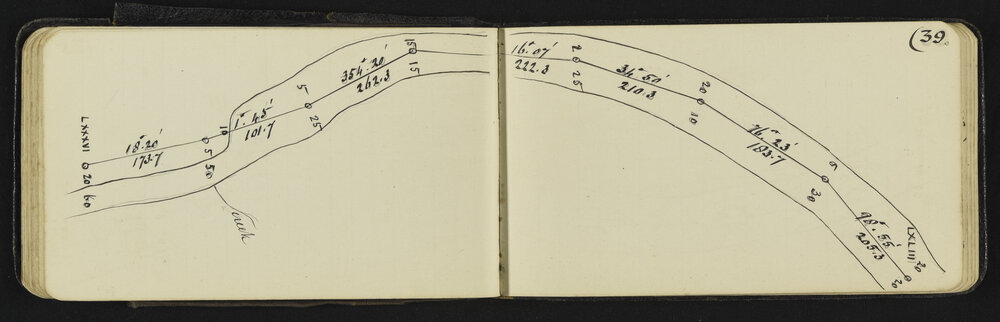 (39.
LXXXVI
20
60
18° 20'
173.7
5
50
10
1° 45'
101.7
5
25
354° 20'
262.3
150
15
Creek
16° 07'
222.3
2
25
34° 50'
210.3
20
10
76° 23'
183.7
30
98° 55'
205.3
LXLIII
20
20